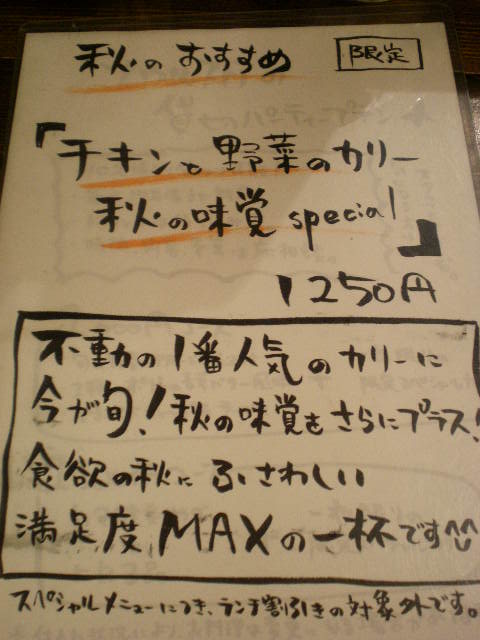 秋のおすすめ
限定
『チキンと野菜のカリー
秋の味覚special』
1250円
不動の1番人気のカリーに
今が旬!秋の味覚をさらにプラス!
食欲の秋にふさわしい
満足度MAXの一杯です^^
スペシャルメニューにつき、ランチ割引きの対象外です。